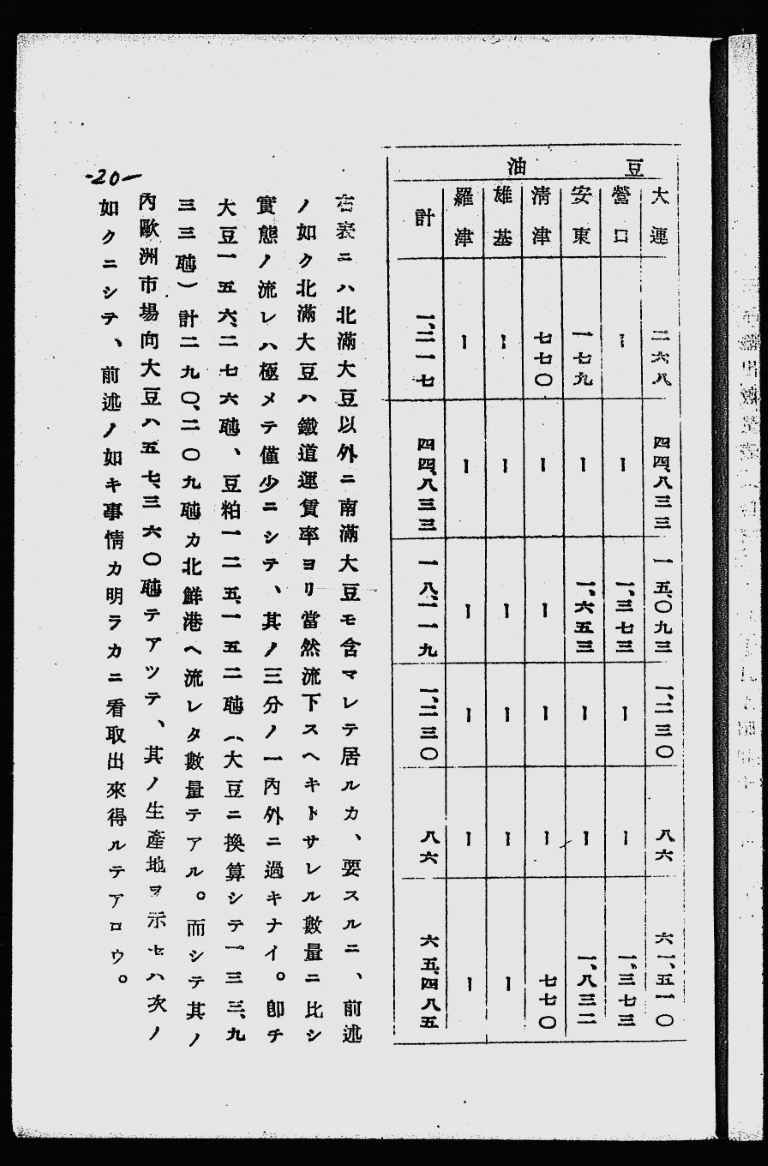 豆油
大連 二六八 四四、八三三 一五、〇九三 一、二三〇 八六 六一、五一〇
營口 ー ー 一、三七三 ー ー 一、三七三
安東 一七九 ー 一、六五三 ー ー 一、八三二
清津 七七〇 ー ー ー ー 七七〇
雄基 ー ー ー ー ー ー
羅津 ー ー ー ー ー ー
計 一、二一七 四四、八三三 一八、一一九 一、二三〇 八六 六五、四八五
右表ニハ北滿大豆以外ニ南滿大豆モ含マレテ居ルカ、要スルニ、前述
ノ如ク北滿大豆ハ鐵道運賃率ヨリ當然流下スヘキトサレル數量ニ比シ
實態ノ流レハ極メテ僅少ニシテ、其ノ三分ノ一內外ニ過キナイ。卽チ
大豆一五六、二七六瓲、豆粕一二五、一五二瓲(大豆ニ換算シテ一三三、九
三三瓲)計二九〇、二〇九瓲カ北鮮港ヘ流レタ數量テアル。而シテ其ノ
內歐洲市場向大豆ハ五七、三六〇瓲テアツテ、其ノ生產地ヲ示セハ次ノ
如クニシテ、前述ノ如キ事情カ明ラカニ看取出來得ルテアロウ。
-20-